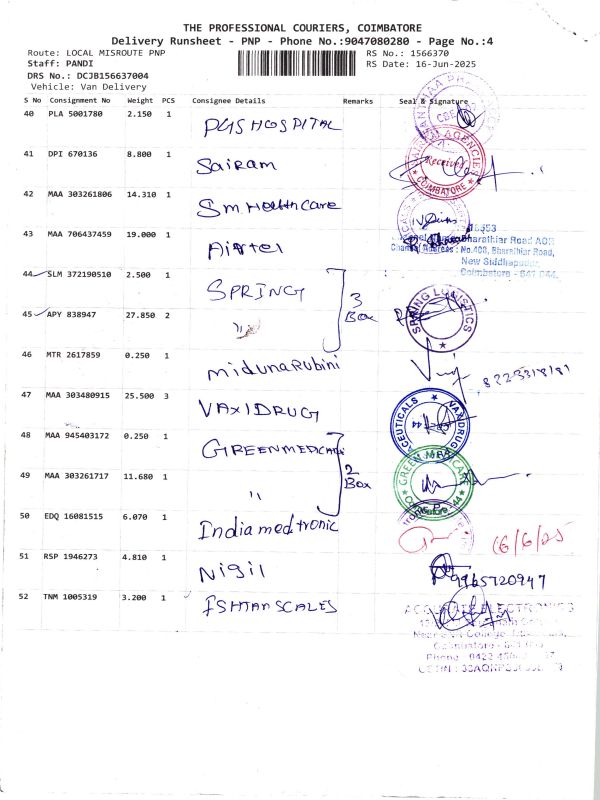 THE PROFESSIONAL COURIERS, COIMBATORE
Delivery Runsheet - PNP - Phone No.:9047080280 - Page No.:4
Route: LOCAL MISROUTE PNP RS No.: 1566370
Staff: PANDI RS Date: 16-Jun-2025
DRS No.: DCJB156637004
Vehicle: Van Delivery
S No Consignment No Weight PCS Consignee Details Remarks Seal & Signature
40 PLA 5001780 2.150 1 PGS HOSPITAL
41 DPI 670136 8.800 1 Sairam
AGENCIES
Received
COIMBATORE
42 MAA 303261806 14.310 1 Sm Healthcare
43 MAA 706437459 19.000 1 Airtel
Bharathiar Road
No.400, Bharathiar Road,
New Siddhapudur,
Coimbatore - 641 044.
44 SLM 372190510 2.500 1 SPRING
3 Box
45 APY 838947 27.850 2 "
SPRING LOGISTICS
46 MTR 2617859 0.250 1 midunaRubini
8223318181
47 MAA 303480915 25.500 3 VAXIDRUG
48 MAA 945403172 0.250 1 GREENMEDCARE
2 Box
49 MAA 303261717 11.680 1 "
50 EDQ 16081515 6.070 1 India medtronic
16/6/25
51 RSP 1946273 4.810 1 Nigil
9965720947
52 TNM 1005319 3.200 1 ISHTAR SCALES
ACCURATE ELECTRONICS
Coimbatore
Phone : 0422